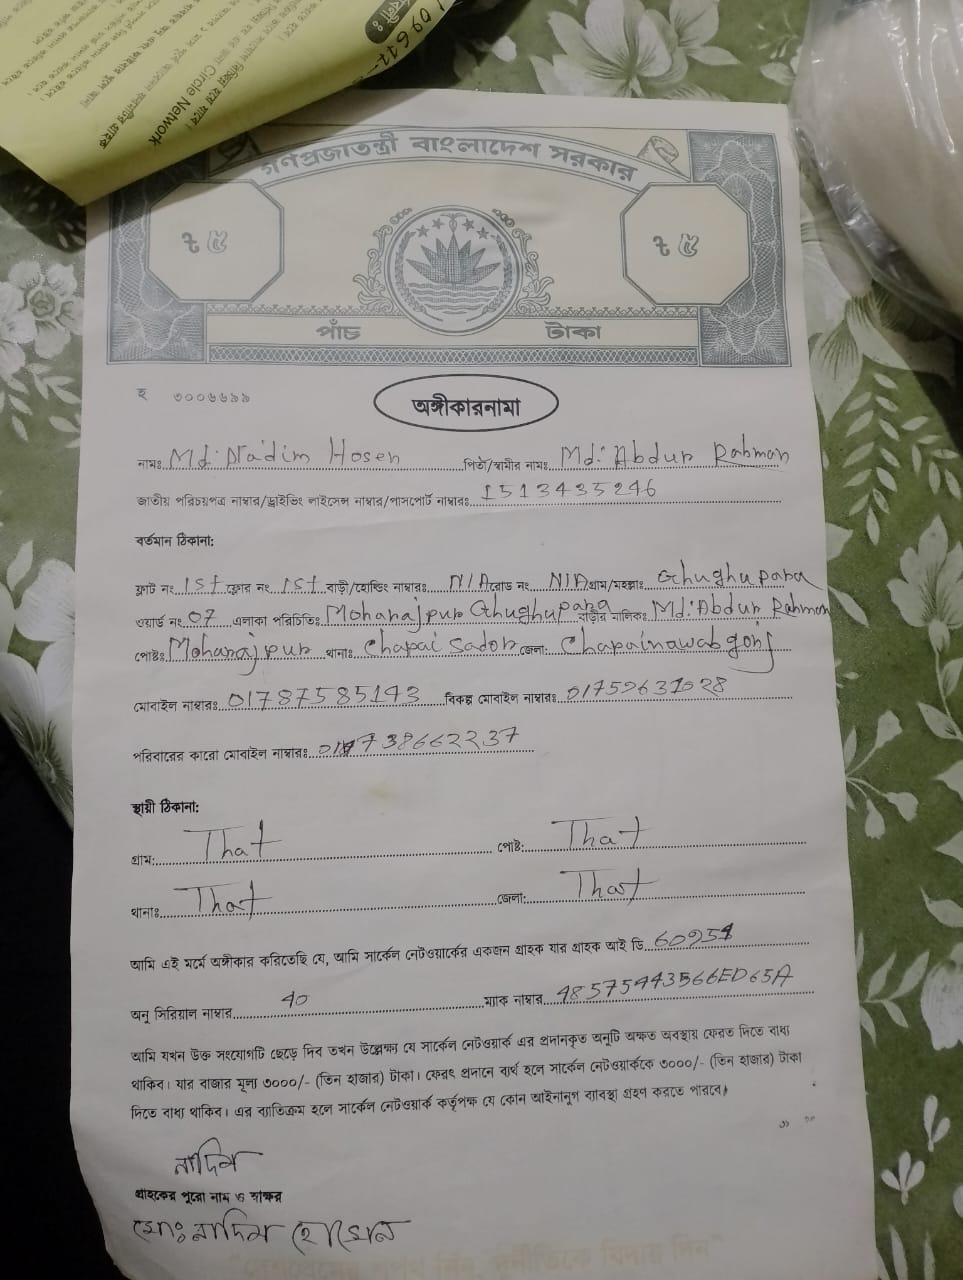 Circle Network
09611
গণপ্রজাতন্ত্রী বাংলাদেশ সরকার
৳ ৫ ৳ ৫
পাঁচ টাকা
অঙ্গীকারনামা
নামঃ Md: Nadim Hosen পিতা/স্বামীর নামঃ Md: Abdur Rahman
জাতীয় পরিচয়পত্র নাম্বার/ড্রাইভিং লাইসেন্স নাম্বার/পাসপোর্ট নাম্বারঃ 1513435246
বর্তমান ঠিকানা:
ফ্লাট নং 1st ফ্লোর নং 1st বাড়ী/হোল্ডিং নাম্বারঃ N/A রোড নং N/A গ্রাম/মহল্লাঃ Ghughupara
ওয়ার্ড নং 07 এলাকা পরিচিতিঃ Moharajpur Ghughupara বাড়ীর মালিকঃ Md: Abdur Rahman
পোষ্টঃ Moharajpur থানাঃ Chapai Sador জেলা: Chapainawabgonj
মোবাইল নাম্বারঃ 01787585143 বিকল্প মোবাইল নাম্বারঃ
পরিবারের কারো মোবাইল নাম্বারঃ
স্থায়ী ঠিকানা:
গ্রাম: That পোষ্ট: That
থানাঃ That জেলা: That
আমি এই মর্মে অঙ্গীকার করিতেছি যে, আমি সার্কেল নেটওয়ার্কের একজন গ্রাহক যার গ্রাহক আই ডি 60951
অনু সিরিয়াল নাম্বার 40 ম্যাক নাম্বার
আমি যখন উক্ত সংযোগটি ছেড়ে দিব তখন উল্লেক্ষ্য যে সার্কেল নেটওয়ার্ক এর প্রদানকৃত অনুটি অক্ষত অবস্থায় ফেরত দিতে বাধ্য
থাকিব। যার বাজার মূল্য ৩০০০/- (তিন হাজার) টাকা। ফেরৎ প্রদানে ব্যর্থ হলে সার্কেল নেটওয়ার্ককে ৩০০০/- (তিন হাজার) টাকা
দিতে বাধ্য থাকিব। এর ব্যতিক্রম হলে সার্কেল নেটওয়ার্ক কর্তৃপক্ষ যে কোন আইনানুগ ব্যবস্থা গ্রহণ করতে পারবে।
নাদিম
গ্রাহকের পুরো নাম ও স্বাক্ষর
মোঃ নাদিম হোসেন